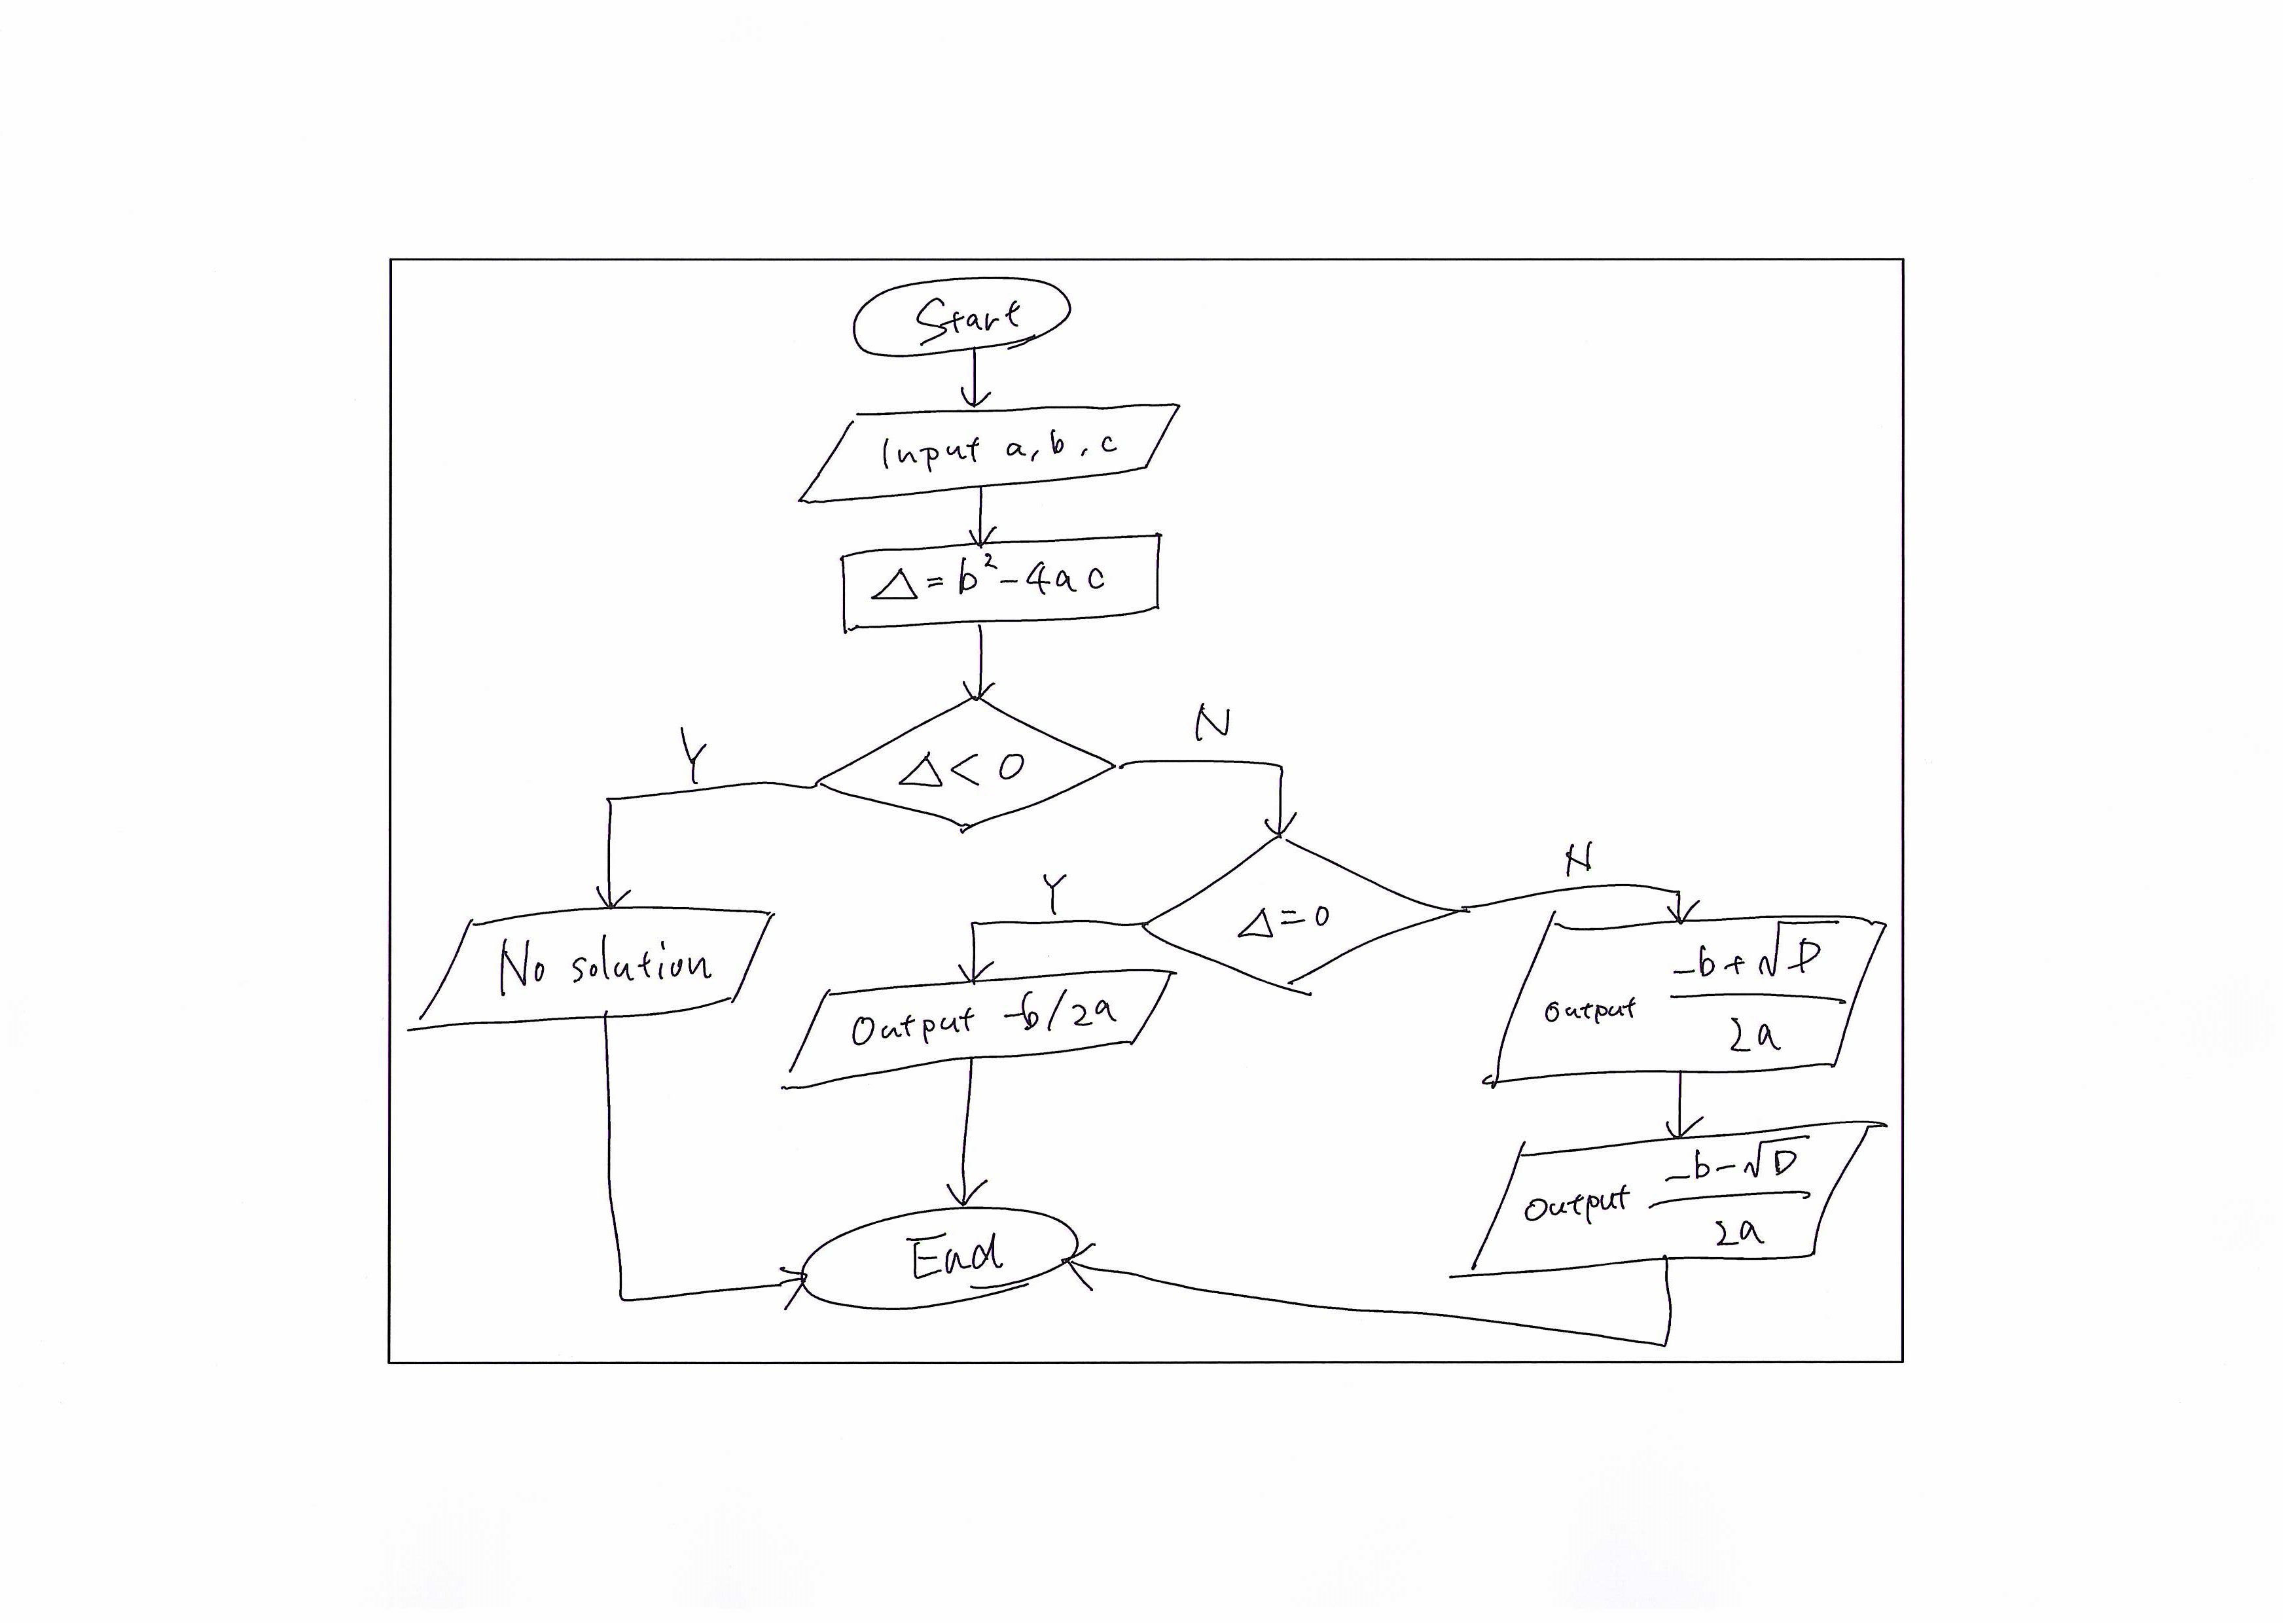 Start
Input a, b, c
Δ = b² - 4ac
Δ < 0
Y
N
Δ = 0
Y
N
No solution
Output -b/2a
Output (-b+√D)/2a
Output (-b-√D)/2a
End